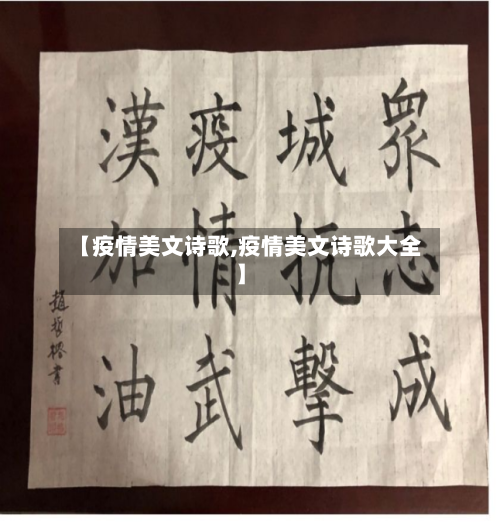 衆志成
城抗擊
疫情武
漢加油
趙書
【疫情美文诗歌,疫情美文诗歌大全
】